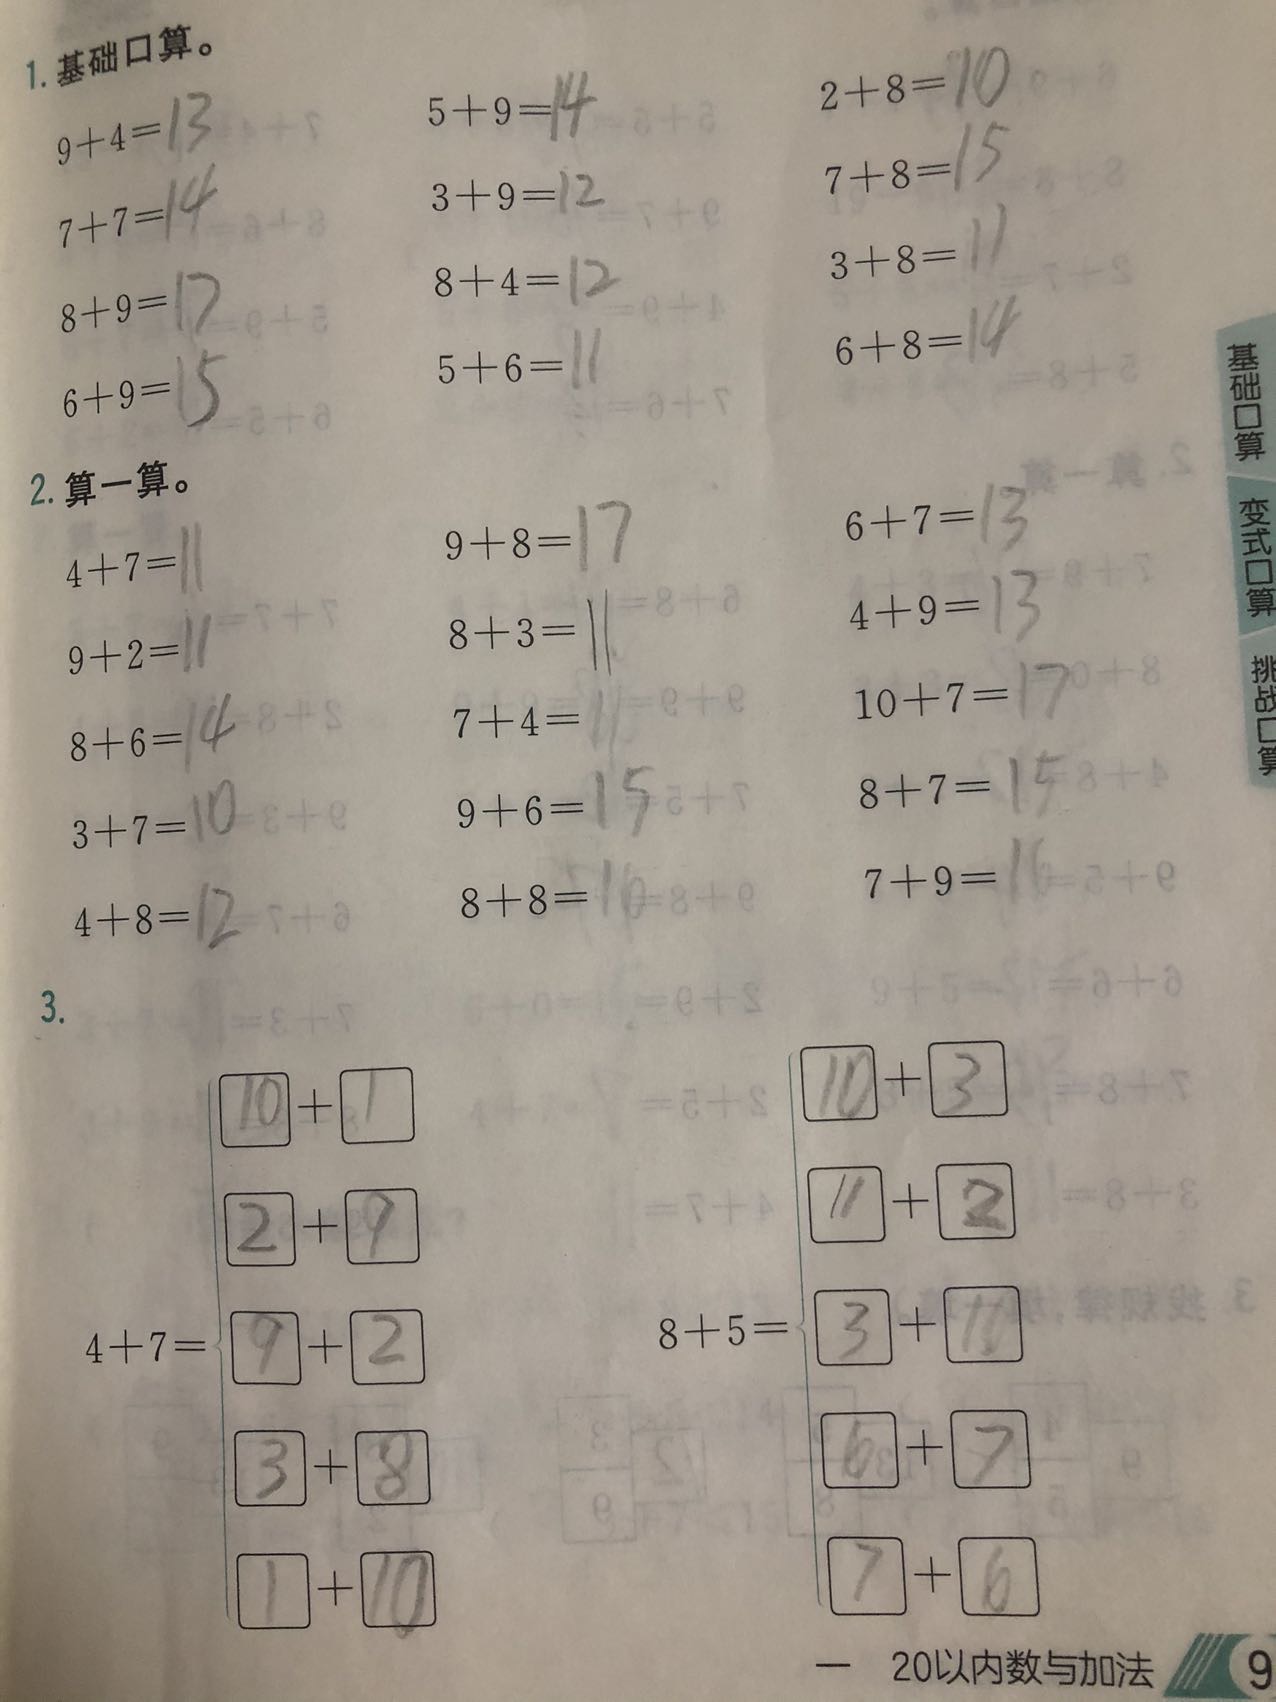 1. 基础口算。
9+4=13 5+9=14 2+8=10
7+7=14 3+9=12 7+8=15
8+9=17 8+4=12 3+8=11
6+9=15 5+6=11 6+8=14
2. 算一算。
4+7=11 9+8=17 6+7=13
9+2=11 8+3=11 4+9=13
8+6=14 7+4=11 10+7=17
3+7=10 9+6=15 8+7=15
4+8=12 8+8=16 7+9=16
3.
4+7=
10+1
2+9
9+2
3+8
1+10
8+5=
10+3
11+2
3+10
6+7
7+6
基础口算
变式口算
挑战口算
一 20以内数与加法 9